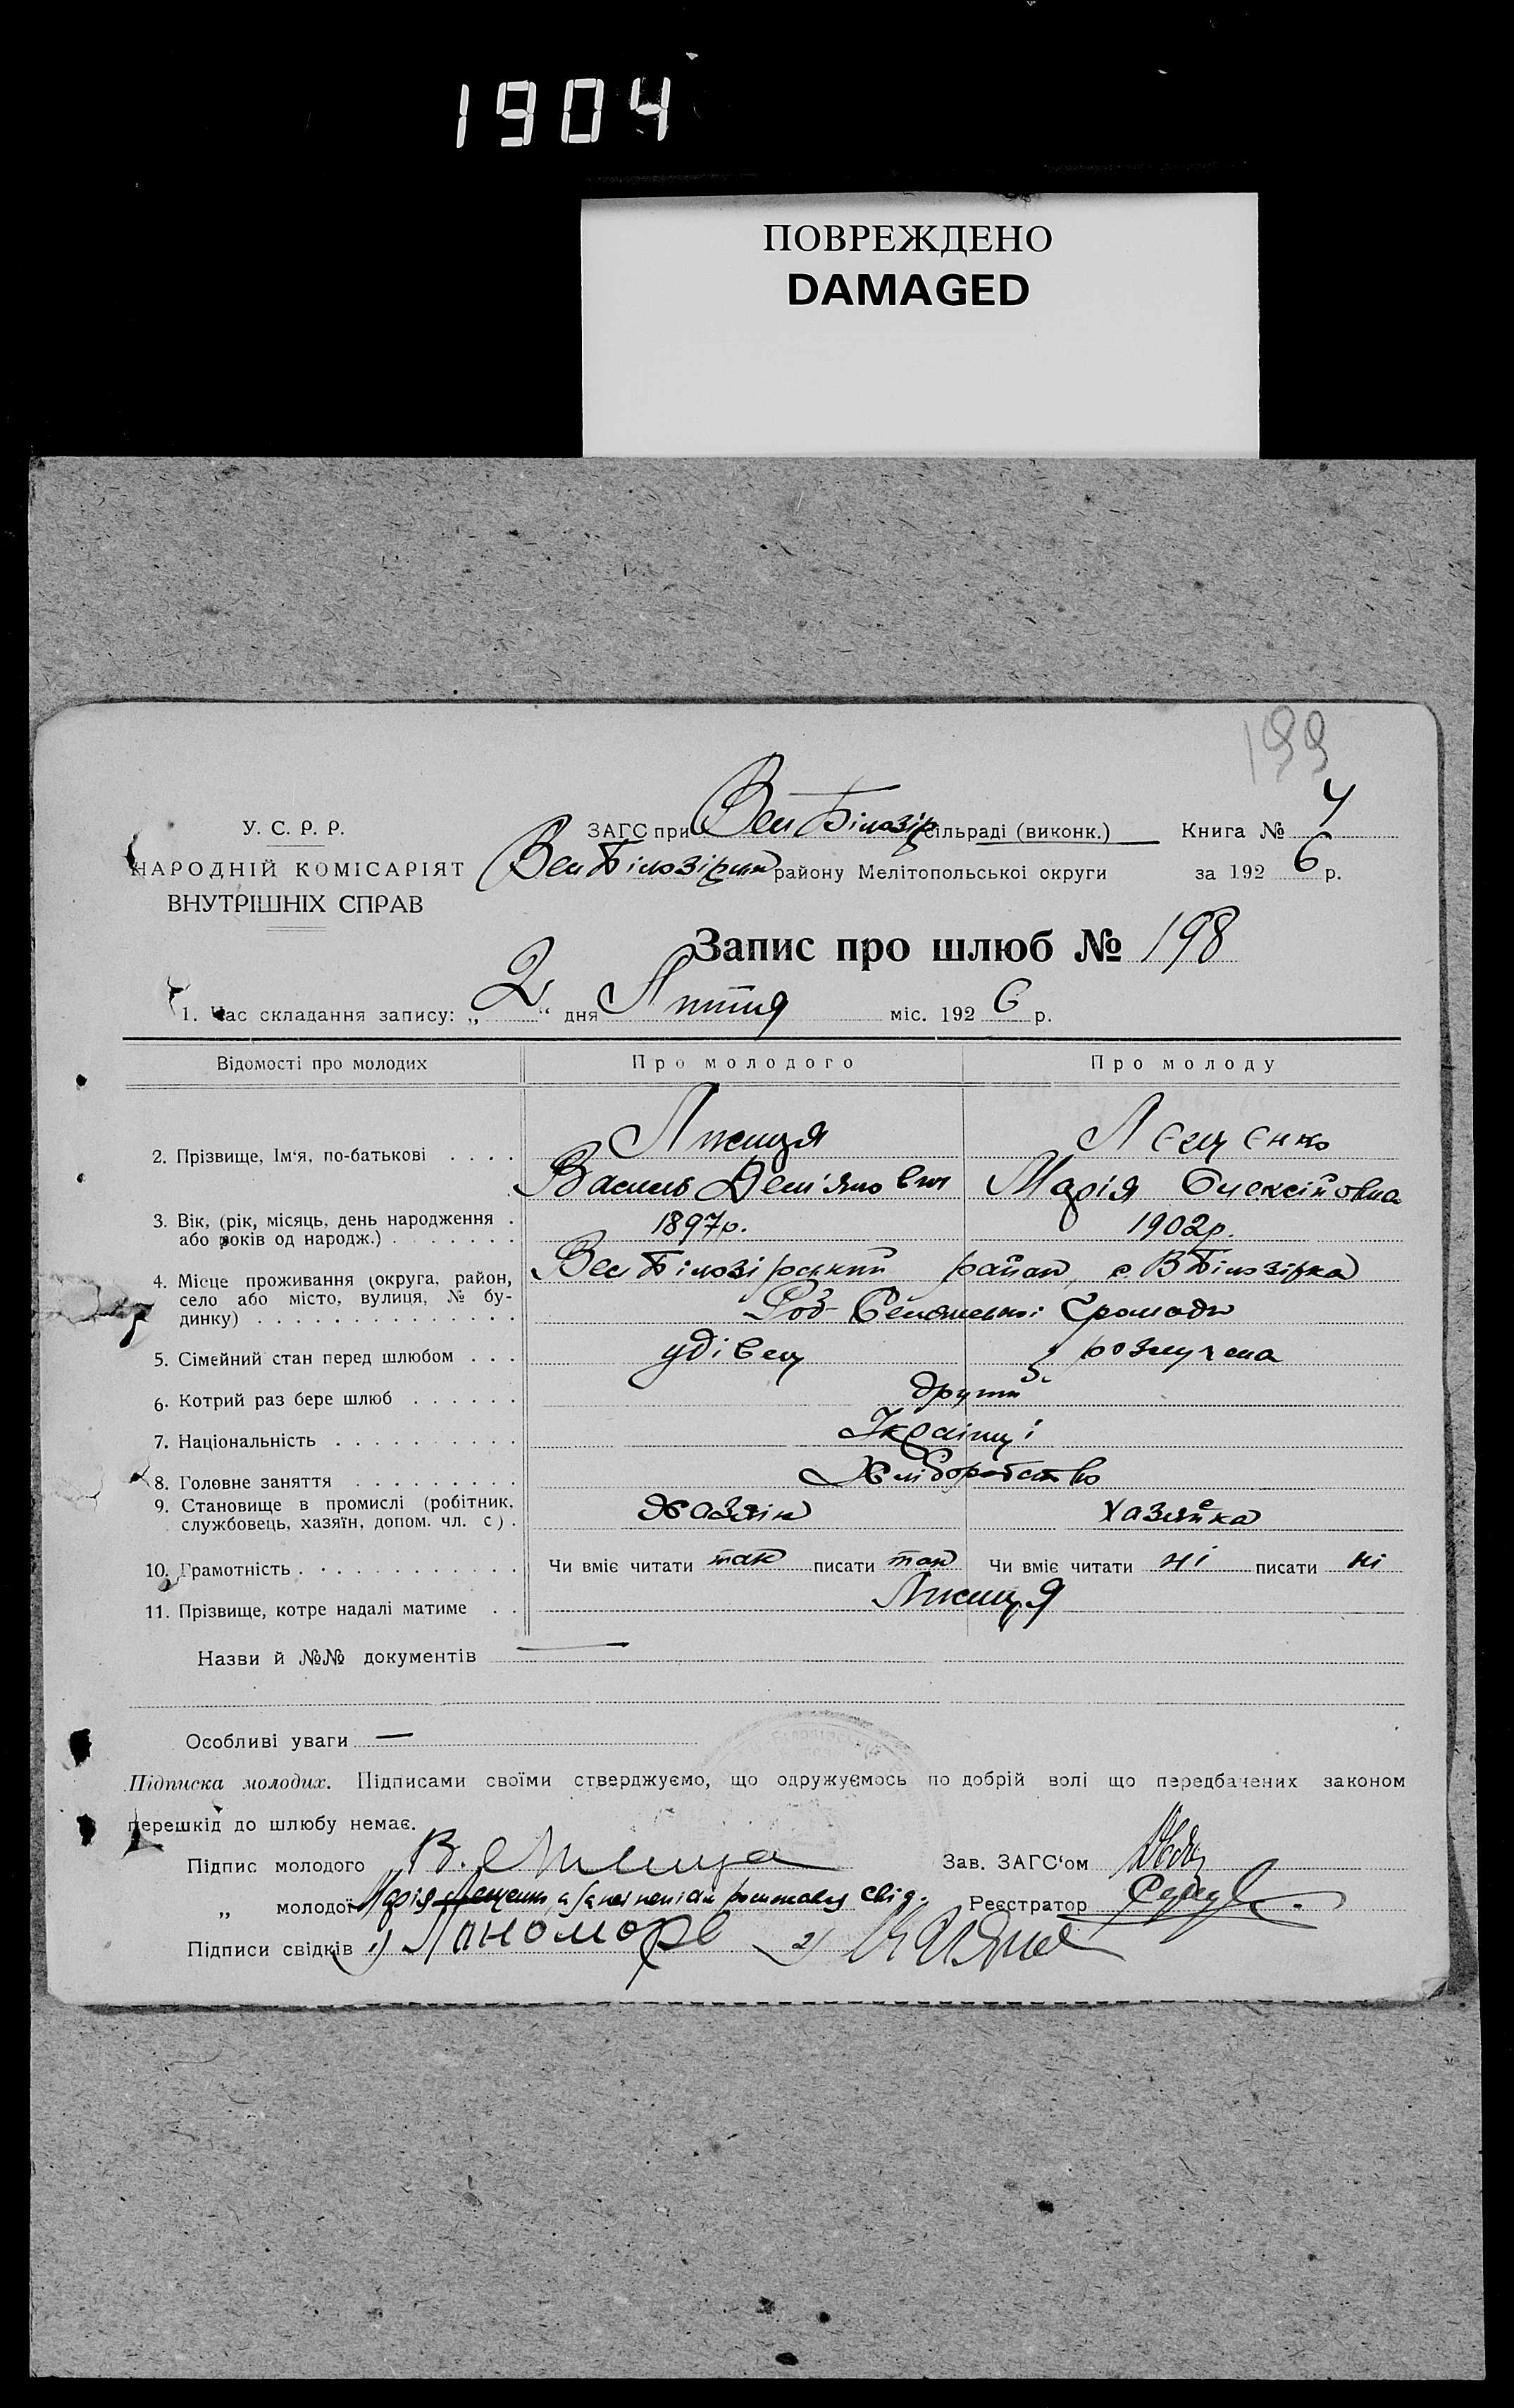 1904
ПОВРЕЖДЕНО
DAMAGED
199
У. С. Р. Р.
НАРОДНІЙ КОМІСАРІЯТ
ВНУТРІШНІХ СПРАВ
ЗАГС при Вел Білозір сільраді (виконк.) Книга № 4
Вел Білозірськ району Мелітопольської округи за 192 6 р.
Запис про шлюб № 198
1. Час складання запису: „ 2 “ дня Липня міс. 192 6 р.
Відомості про молодих Про молодого Про молоду
2. Прізвище, Ім'я, по-батькові . . . . Лисиця Лєщенко
Василь Дем'янович Марія Олексійовна
3. Вік, (рік, місяць, день народження .
або років од народж.) . . . . . . . 1897р. 1902р.
4. Місце проживання (округа, район,
село або місто, вулиця, № бу-
динку) . . . . . . . . . . . . . .
Вел Білозірський район, с. В Білозірка
Роб-Селянської Громади
5. Сімейний стан перед шлюбом . . . удівец розлучена
6. Котрий раз бере шлюб . . . . . . другий
7. Національність . . . . . . . . . . Українці
8. Головне заняття . . . . . . . . . Хліборобство
9. Становище в промислі (робітник,
службовець, хазяїн, допом. чл. с ) . Хазяін хазяйка
10. Грамотність . . . . . . . . . . . . Чи вміє читати так писати так Чи вміє читати ні писати ні
11. Прізвище, котре надалі матиме . . Лисиця
Назви й №№ документів —
Особливі уваги —
Підписка молодих. Підписами своїми стверджуємо, що одружуємось по добрій волі що передбачених законом
перешкід до шлюбу немає.
Підпис молодого В. Лисица Зав. ЗАГС'ом
„ молодої Марія Лещенко, а свід. Реєстратор
Підписи свідків 1) Пономорв 2)